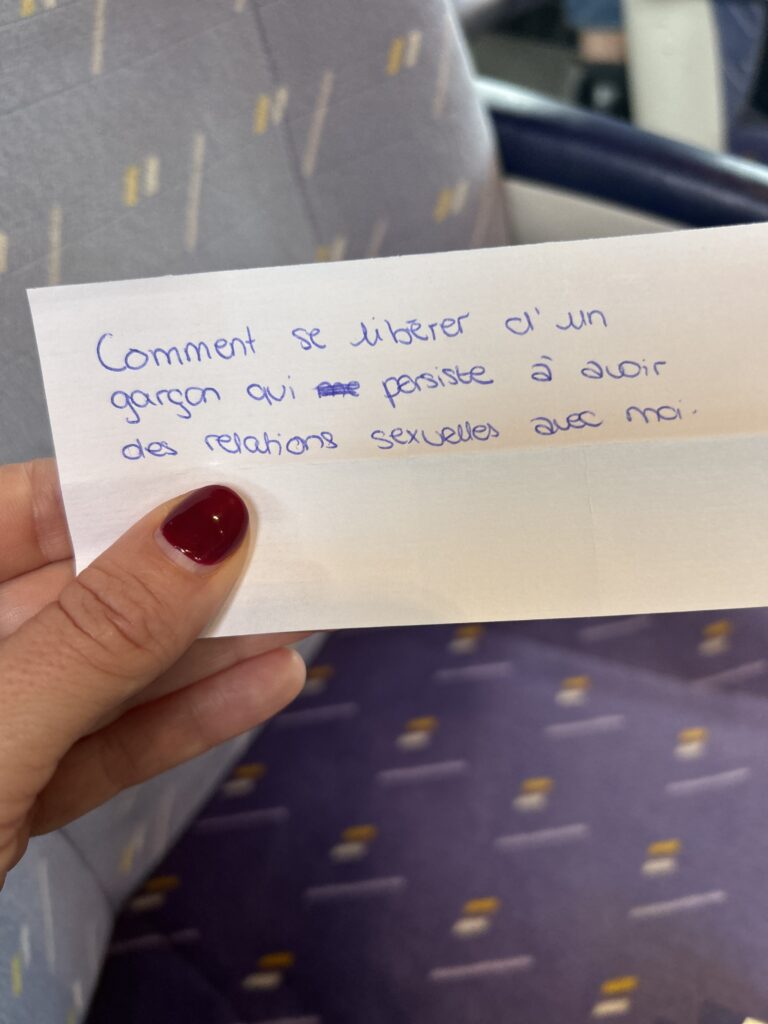 Comment se libérer d'un
garçon qui persiste à avoir
des relations sexuelles avec moi.